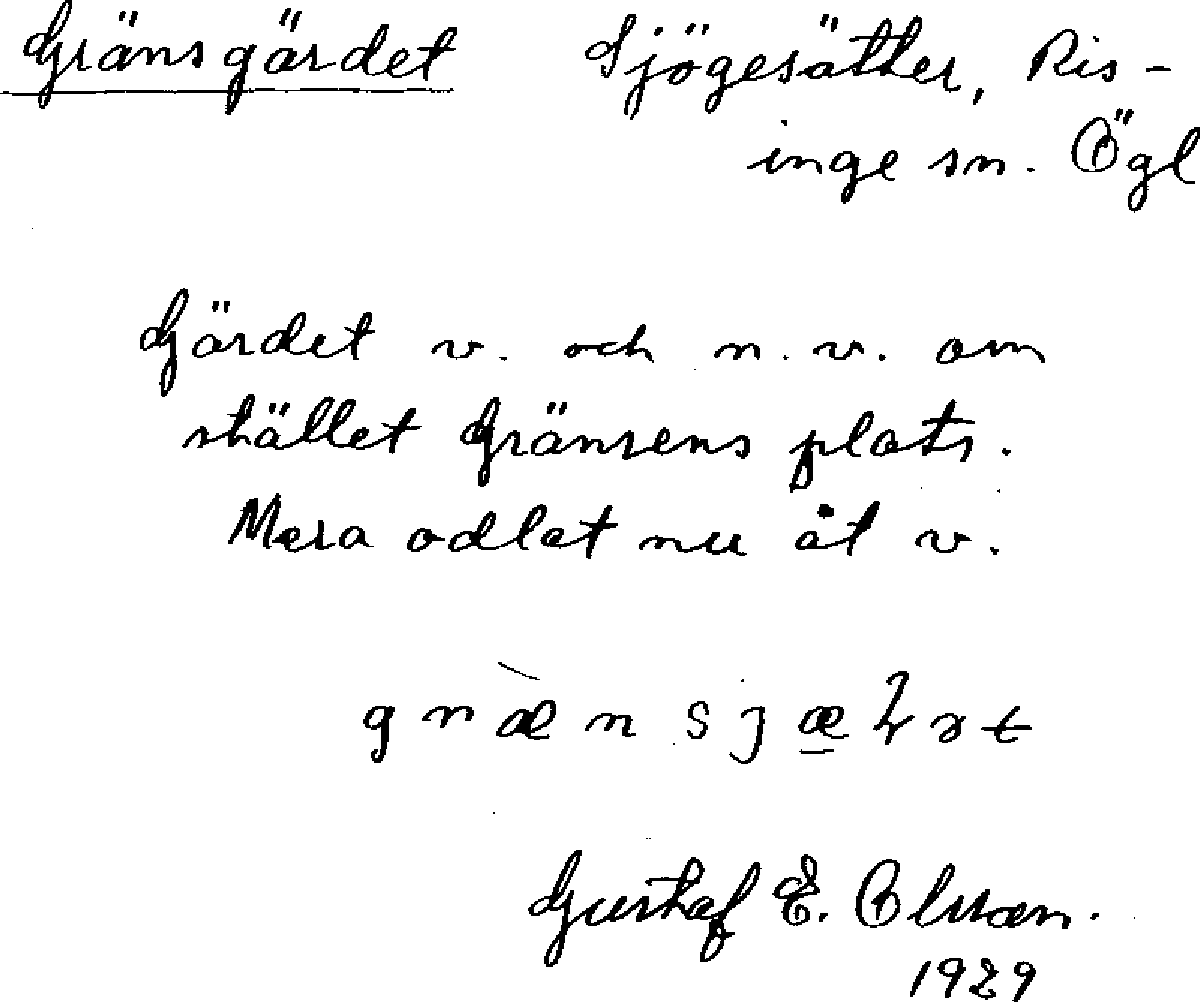 Gränsgärdet Sjögesätter, Ris-
inge sn. Ögl
Gärdet v. och n.v. om
stället Gränsens plats.
Mera odlat nu åt v.
Gustaf E. Olsson.
1929